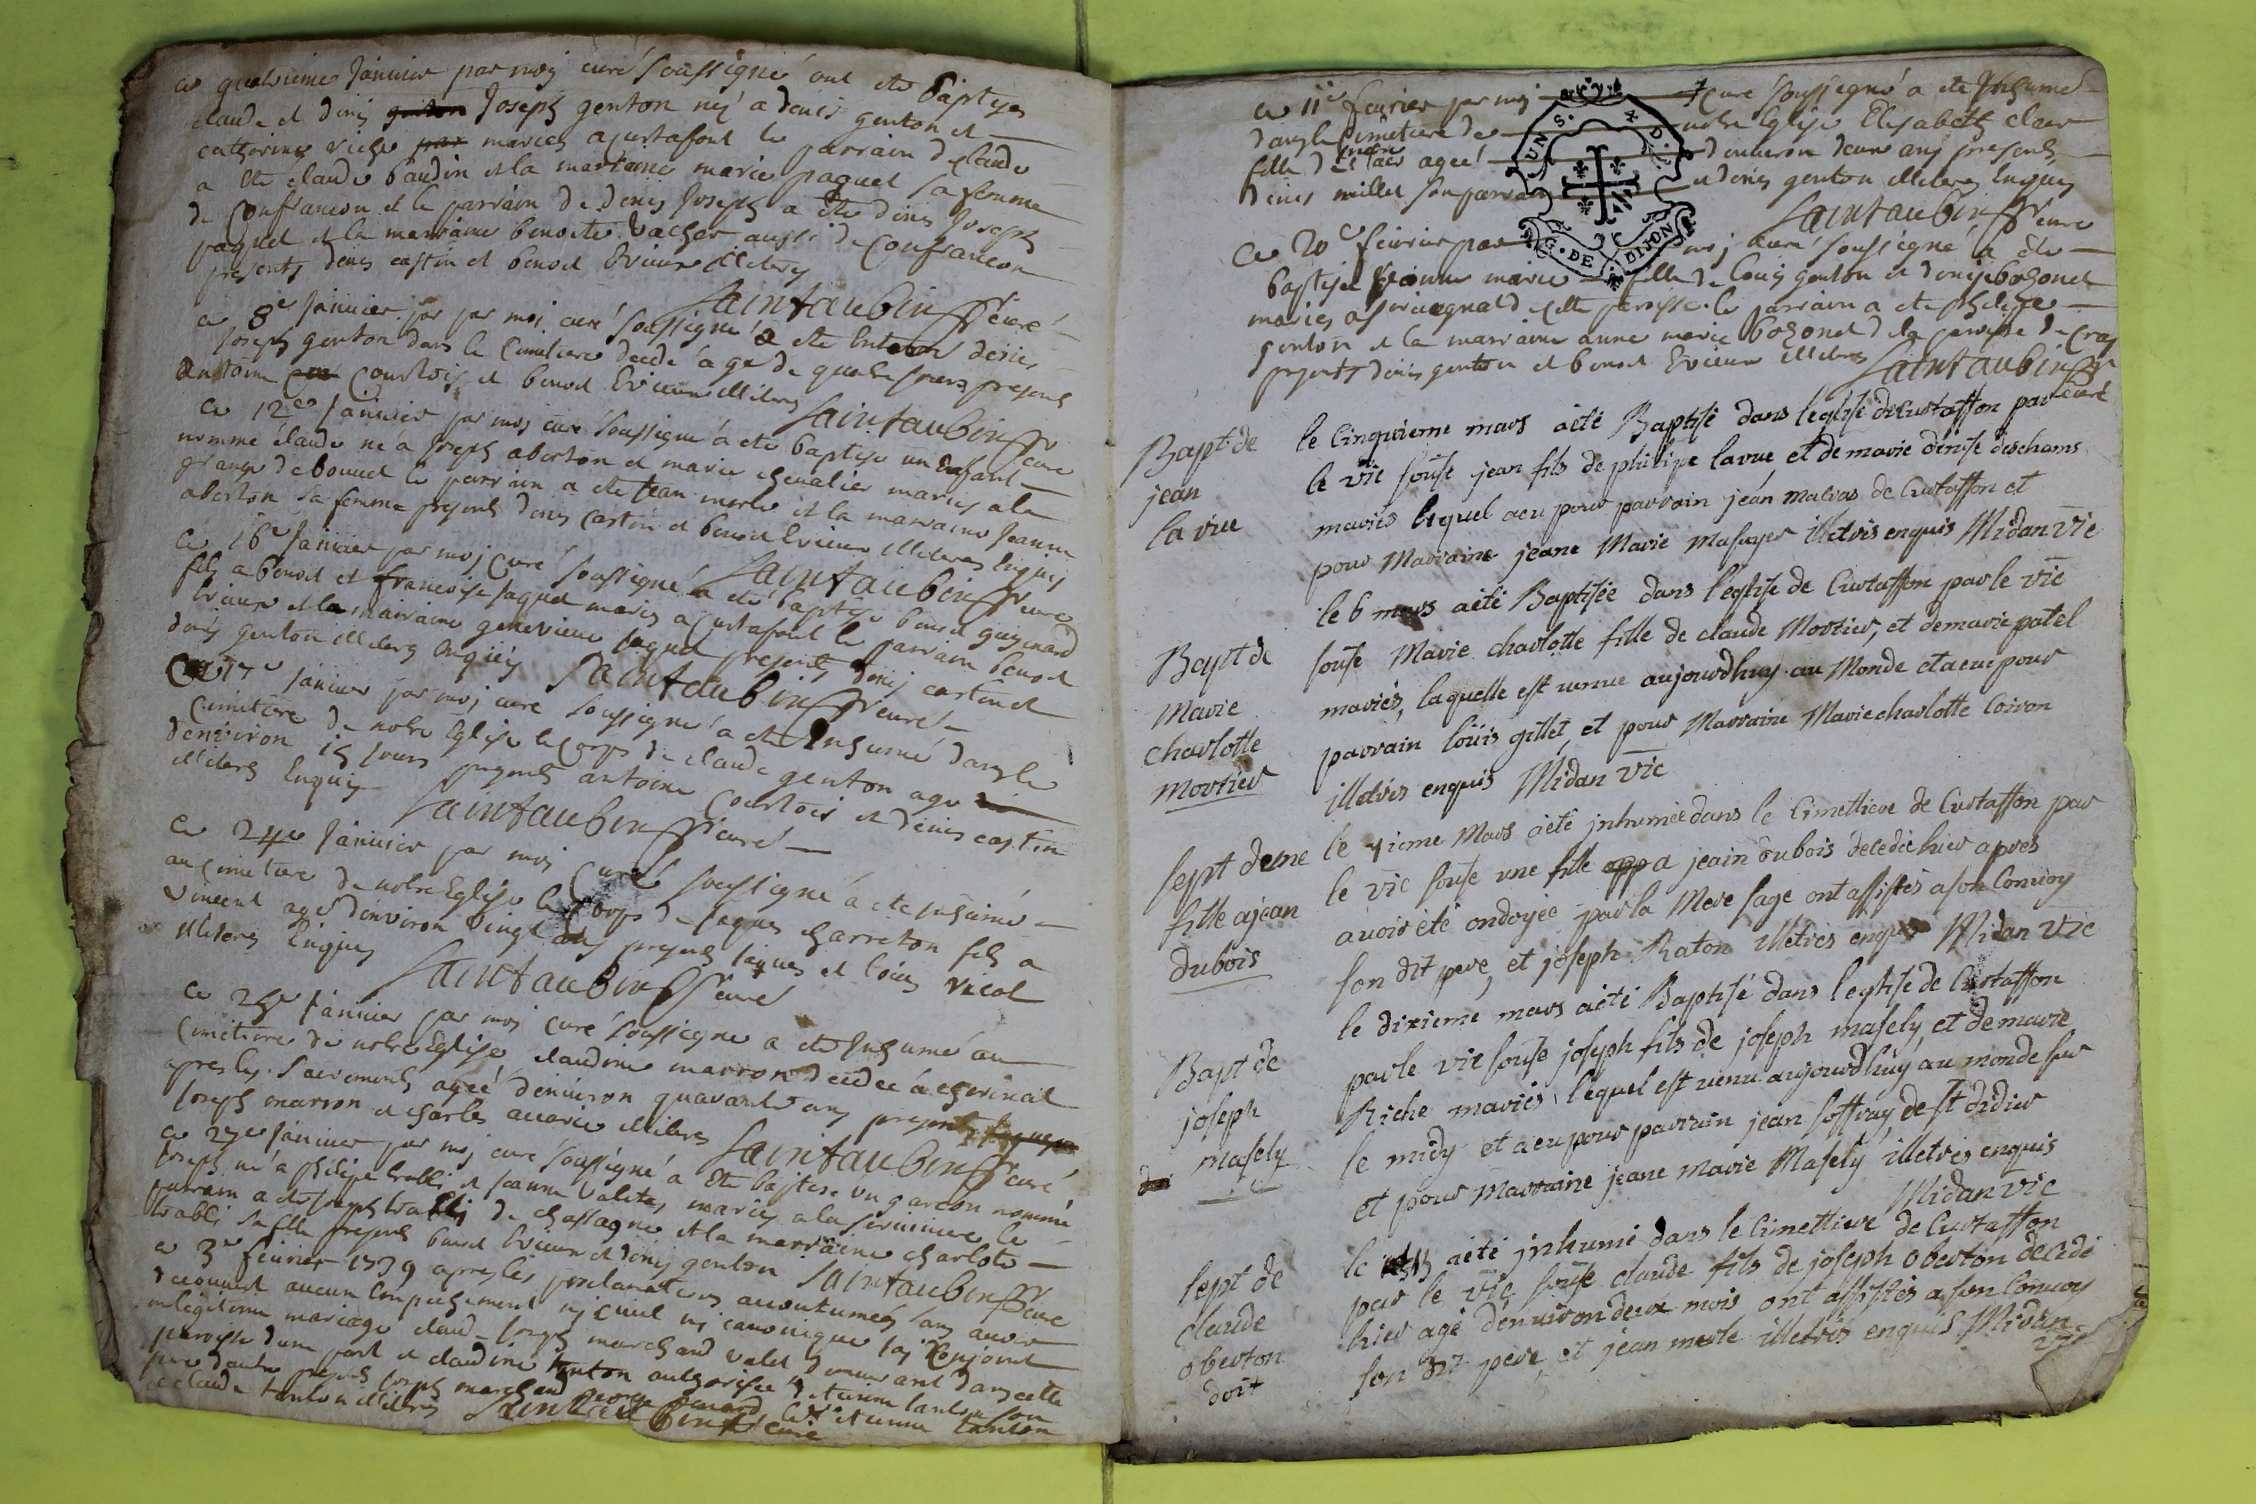 ce quatrieme Janvier par moy curé soussigné ont ete baptises
claude et denis Joseph genton nés a denis genton et
catherine riche mariés a curtafont le parrain de claude
a ete claude baudin et la marraine marie paquet sa femme
de confrancon et le parrain de denis Joseph a ete denis Joseph
paquet et la marraine benoite vacher aussi de confrancon
presents denis castin et benoit Evieux illiteres
Saintaubin curé
ce 8e Janvier par moi curé soussigné a ete Enterré denis
Joseph genton dans le Cimetiere decedé agé de quatre jours presents
antoine Courtois et benoit Evieux illiteres Saintaubin curé
ce 12e Janvier par moi curé soussigné a ete baptisé un enfant
nommé claude né a Joseph aberton et marie chevalier mariés a la
grange de bouvet le parrain a ete Jean merle et la marraine Jeanne
aberton sa femme presents denis castin et benoit Evieux illiteres Enquis
Saintaubin curé
ce 16e Janvier par moi curé soussigné a ete baptisé benoit guignard
fils a benoit et francoise paquet mariés a Curtafont le parrain benoit
Evieux et la marraine genevieve paquet presents denis castin et
denis genton illiteres Enquis Saintaubin curé
Ce 17e Janvier par moi curé soussigné a ete Inhumé dans le
Cimitere de notre Eglise le Corps de claude genton agé
denviron 15 jours presents antoine Courtois et denis castin
illiteres Enquis Saintaubin curé
ce 24e Janvier par moi Curé soussigné a ete inhumé
au cimetiere de notre Eglise le Corps de Jaques charreton fils a
vincent agé denviron vingt ans presents Jaques et louis vicat
illiteres Enquis Saintaubin curé
ce 25e Janvier par moi curé soussigné a ete Inhumé au
Cimetiere de notre Eglise claudine marron decedée a
apres les sacrements agée denviron quarante ans presents
Joseph marron et charles illiteres Saintaubin curé
ce 27e Janvier par moi curé soussigné a ete baptisé un garcon nommé
Joseph né a philipe et Jeanne mariés a la le
parrain a ete Joseph de chassagne et la marraine charlote
sa fille presents benoit Evieux et denis genton Saintaubin curé
ce 3e fevrier 1779 apres les proclamations accoutumées sans avoir
decouvert aucun Empechement ni civil ni canonique Jai Conjoint
en legitime mariage claude Joseph marchand valet demeurant dans cette
paroisse dune part et claudine tonton authorisée detienne tanton son
pere dautre presents Joseph marchand
et claude tanton illiteres Saintaubin curé
ce 11e fevrier par moi curé soussigné a ete Inhumé
dans le Cimetiere de notre Eglise Elisabeth clair
fille de agée denviron deux ans presents
denis millet son parrain et denis genton illiteres Enquis
Saintaubin curé
Ce 20e fevrier par moi curé soussigné a ete
baptisé Jeanne marie fille de louis genton et denise bozonet
mariés a de cette paroisse le parrain a ete philipe
genton et la marraine anne marie bozonet de la paroisse de Cras
presents denis genton et benoit Evieux illiteres Saintaubin
curé
UNS. X D.
G. DE DIJON
Bapt. de
jean
la vue
le cinquieme mars aété Baptisé dans leglise de Curtaffon par
le vic sousé jean fils de philipe lavue et de marie denise deschams
mariés lequel aeu pour parrain jean malvas de Curtaffon et
pour Marraine jeane Marie Masuyer illetrés enquis Midan vic
Bapt de
Marie
charlotte
mortier
le 6 mars aété Baptisée dans léglise de Curtaffon par le vic
sousé Marie charlotte fille de claude Mortier, et demarie patel
mariés, laquelle est venue aujourdhuy au Monde et aeue pour
parrain loüis gillet, et pour Marraine Marie charlotte Coiron
illetrés enquis Midan vic
sept dune
fille ajean
dubois
le 7ieme Mars aété jnhumée dans le Cimettiere de Curtaffon par
le vic sousé une fille a jean dubois decedée hier apres
avoir été ondoyée par la Mere sage ont assistés ason Convoy
son dit pere, et joseph Raton illetrés enquis Midan vic
Bapt de
joseph
masely
le dixieme mars aété Baptisé dans leglise de Curtaffon
parle vic sousé joseph fils de joseph masely, et de marie
Riche mariés lequel est venu aujourdhuy au monde sur
le midy et aeu pour parrain jean soffray de st didier
et pour marraine jeane marie Masely illetrés enquis
Midan vic
sept de
claude
oberton
doit
le aété jnhumé dans le Cimettiere de Curtaffon
par le vic sousé claude fils de joseph oberton decedé
hier agé denviron deux mois ont assistés ason Convoy
son dit pere, et jean merle illetrés enquis Midan